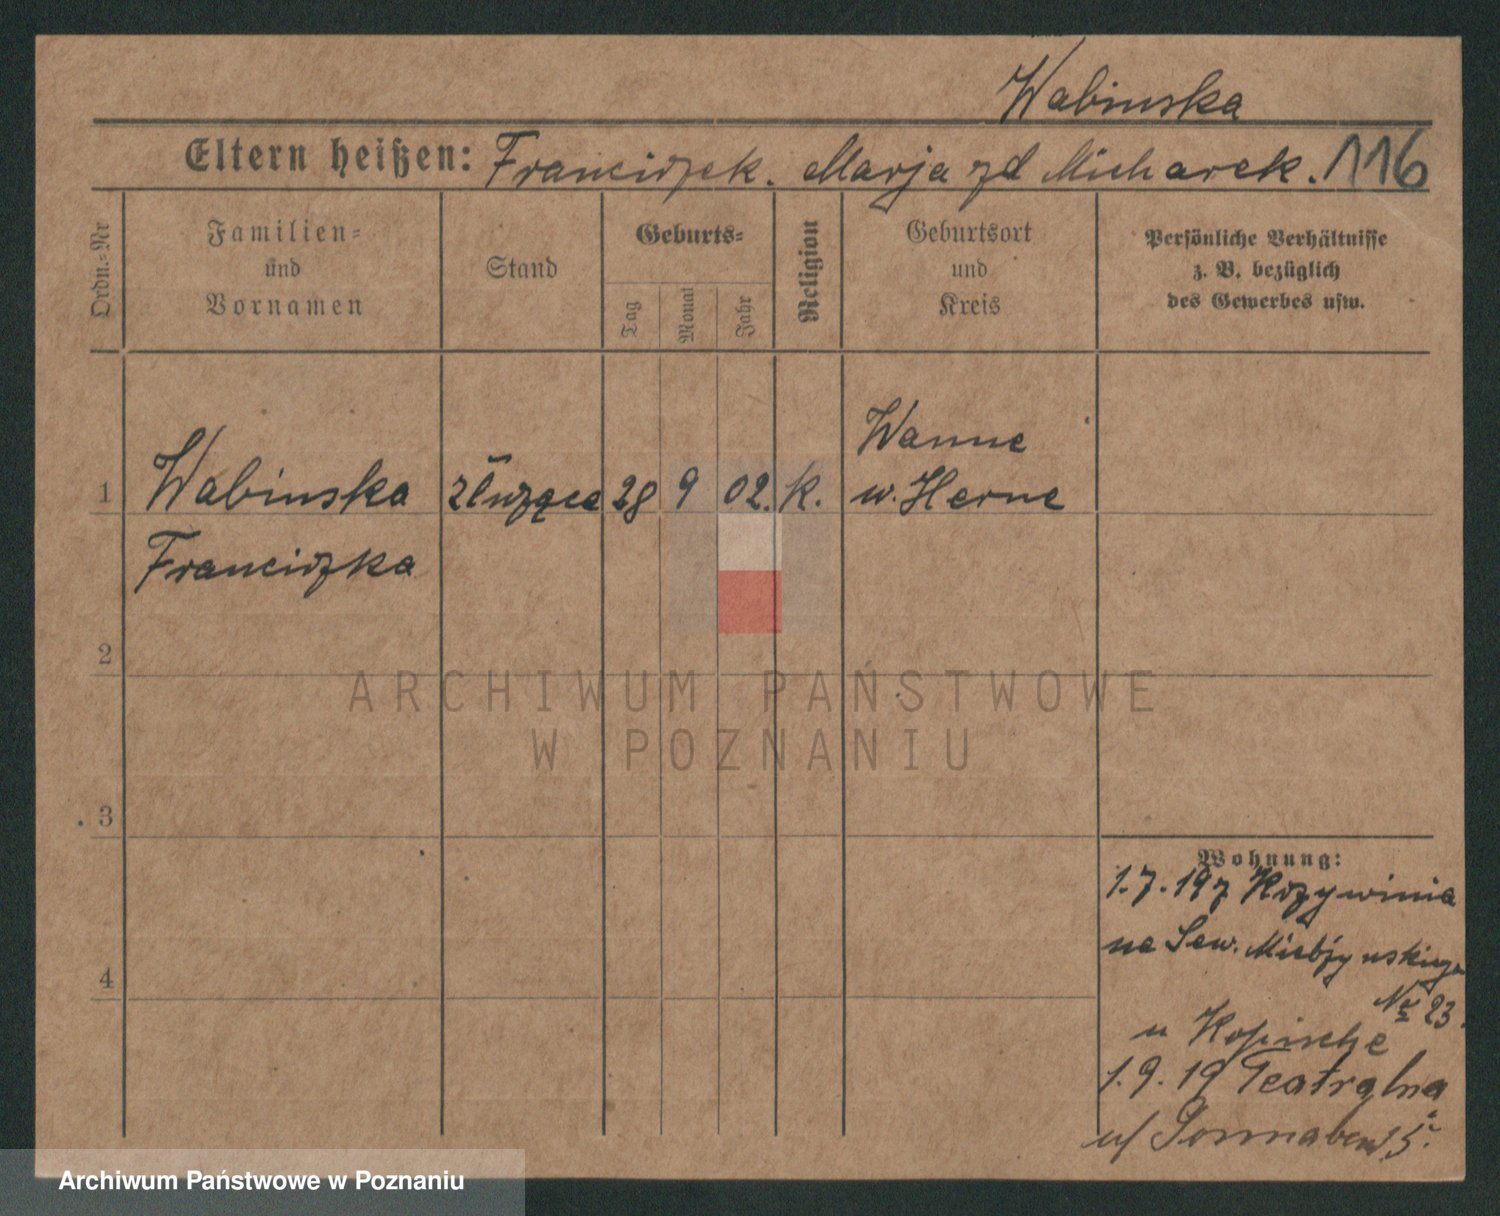 Wabinska
Eltern heißen: Franciszek. Marja zd Micharek. 116
Ordn.=Nr
Familien=
und
Vornamen
Stand
Geburts=
Tag
Monat
Jahr
Religion
Geburtsort
und
Kreis
Persönliche Verhältnisse
z. B. bezüglich
des Gewerbes usw.
Wanne
1 Wabinska służąca 28 9 02. k. w. Herne
Franciszka
2
3
4
Wohnung:
1.7.19
na Sew. Mielżyńskiego
№ 23.
u Kopische
1.9.19 Teatralna
5.
ARCHIWUM PAŃSTWOWE
W POZNANIU
Archiwum Państwowe w Poznaniu